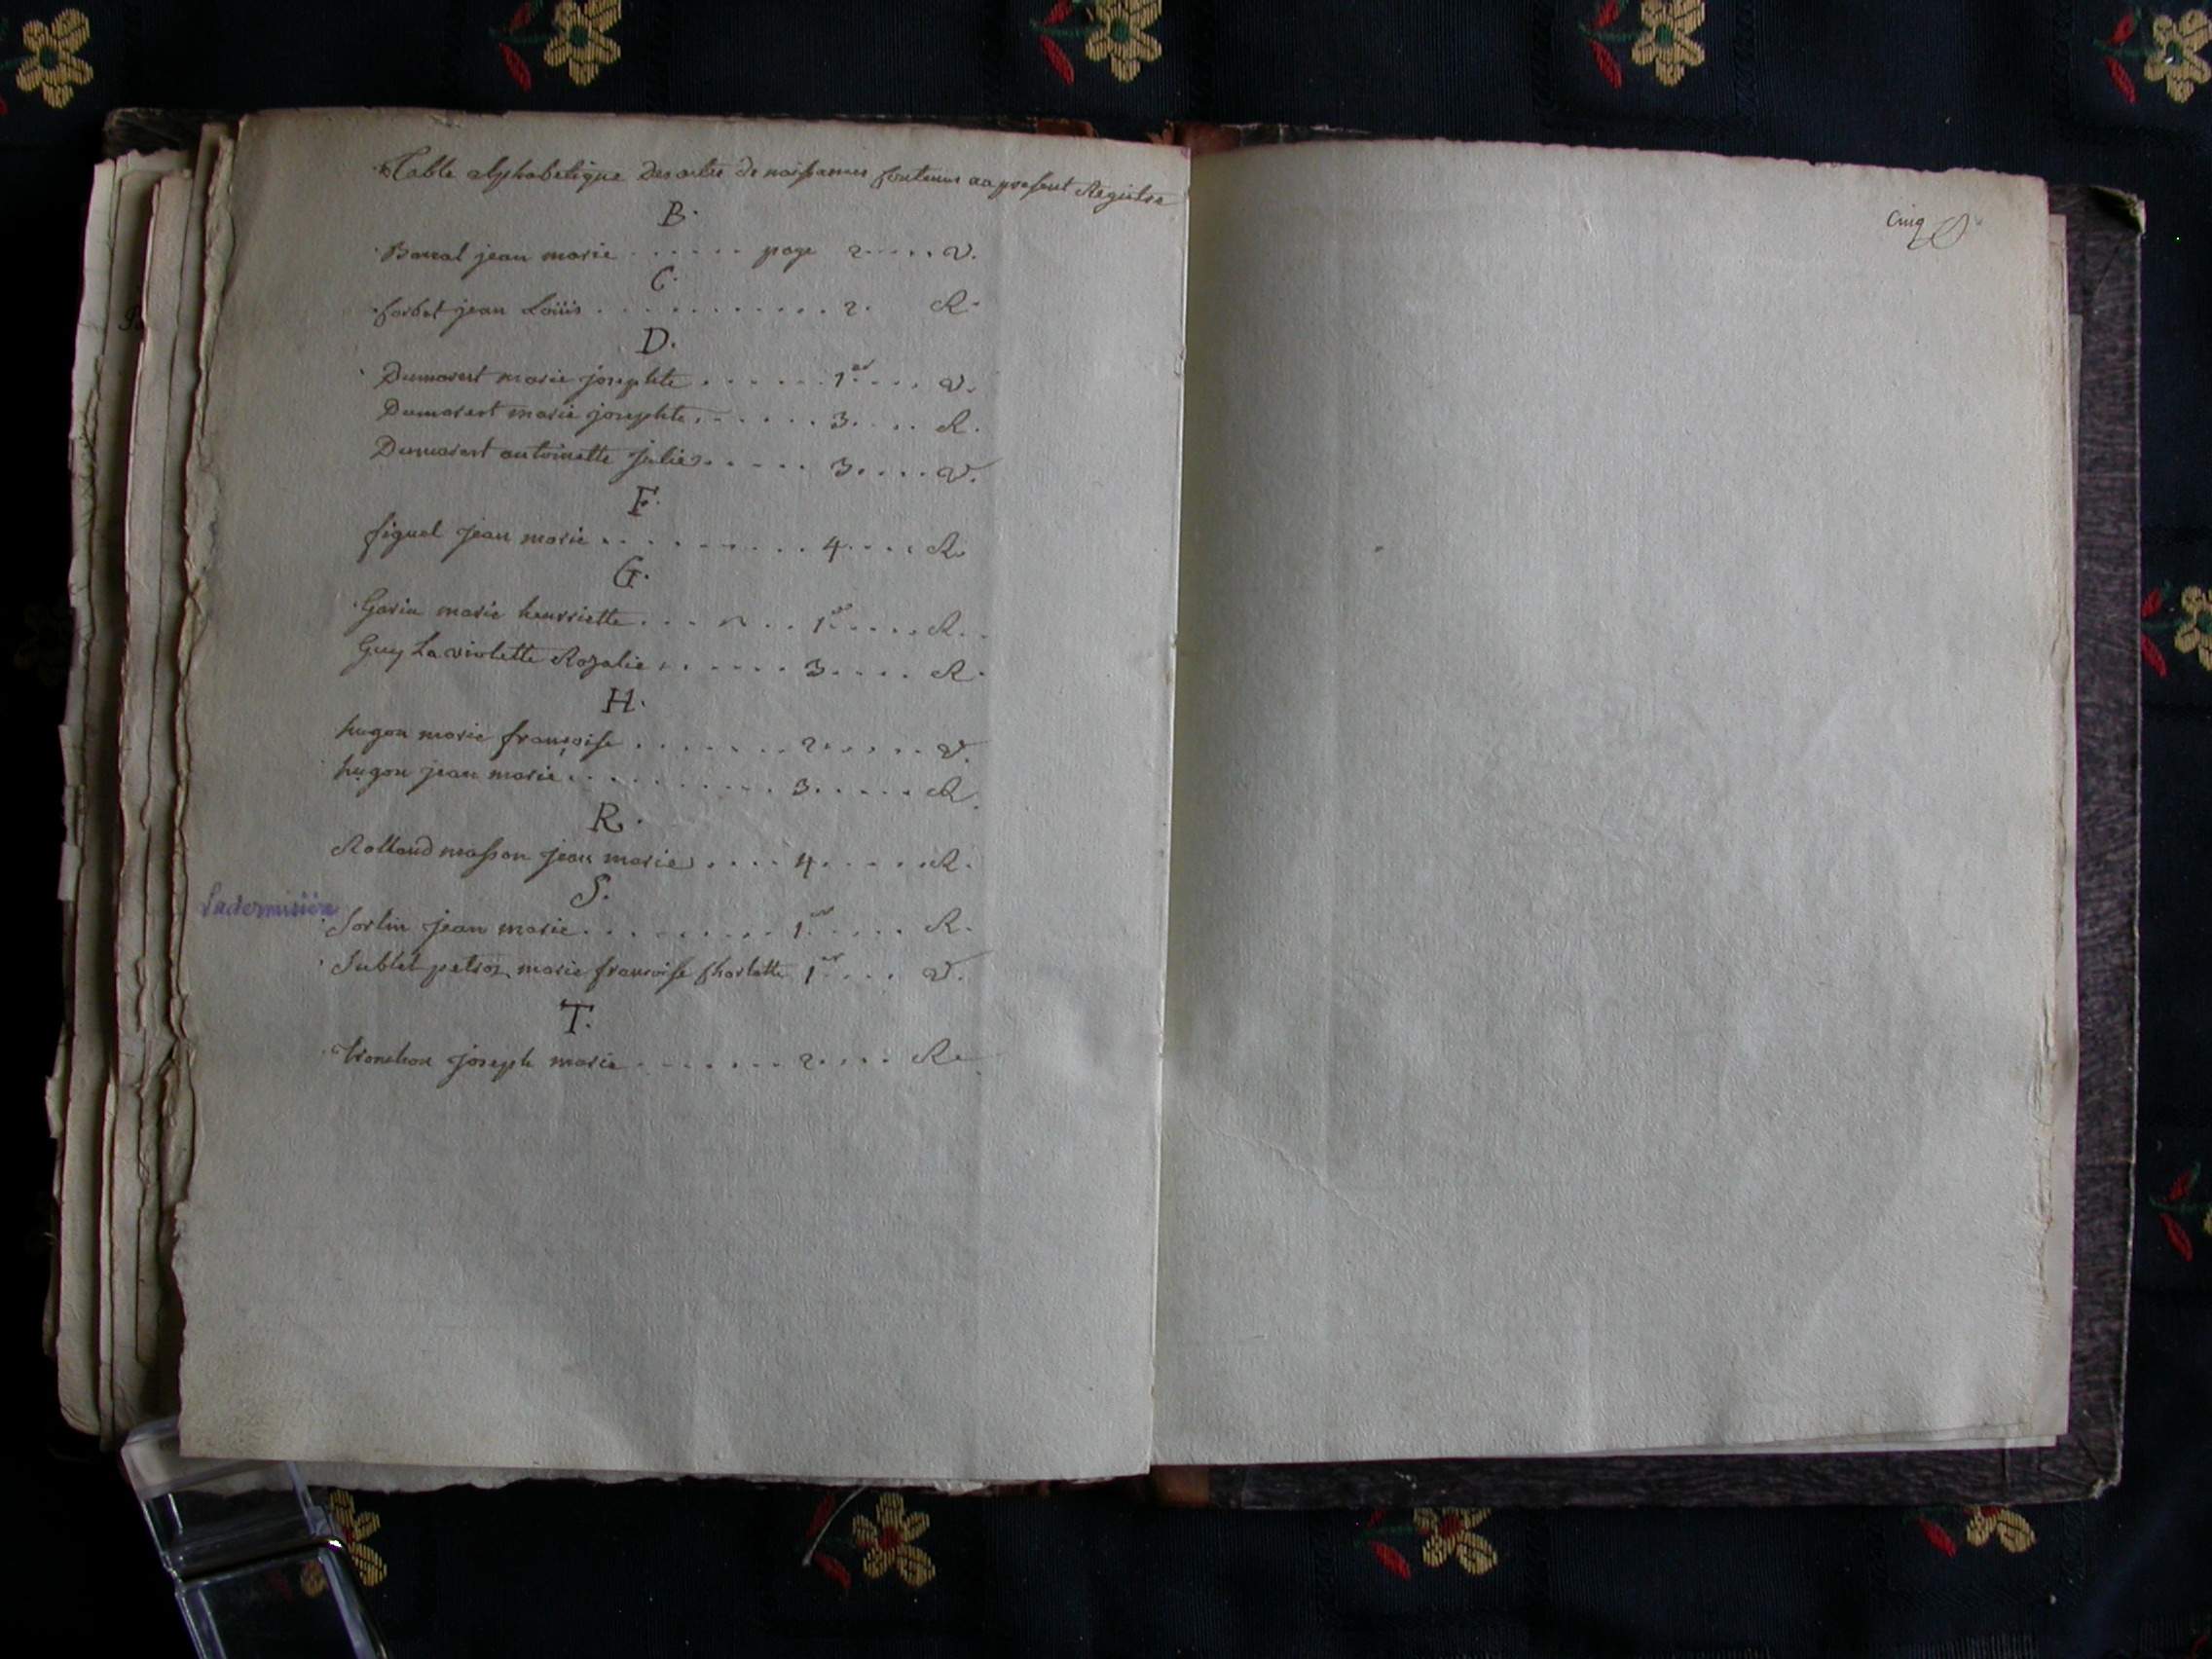 Table alphabetique des actes de naissances Contenus au present Registre
B.
Barral jean marie . . . . . . page 2 . . . . . V.
C.
Corbet jean Loüis . . . . . . . . . . . . 2. R.
D.
Dumarest marie josephte . . . . . . 1er . . . . V.
Dumarest marie josephte . . . . . . 3. . . . . R.
Dumarest antoinette julie . . . . . 3. . . . V.
F.
figuet jean marie . . . . . . . . . 4. . . . . R.
G.
Garin marie henrriette . . . . . . . 1er . . . . . R.
Guy La violette Rozalie . . . . . . . 3. . . . . R.
H.
hugon marie françoise . . . . . . . 2. . . . . . V.
hugon jean marie . . . . . . . . . . 3. . . . . . R.
R.
Rolland masson jean marie . . . . 4. . . . . . R.
S.
Ladermisière
Sorlin jean marie . . . . . . . . . 1er . . . . . R.
Sublet petroz marie françoise Charlotte 1er . . . . V.
T.
tronchon joseph marie . . . . . . . 2. . . . . R.
Cinq